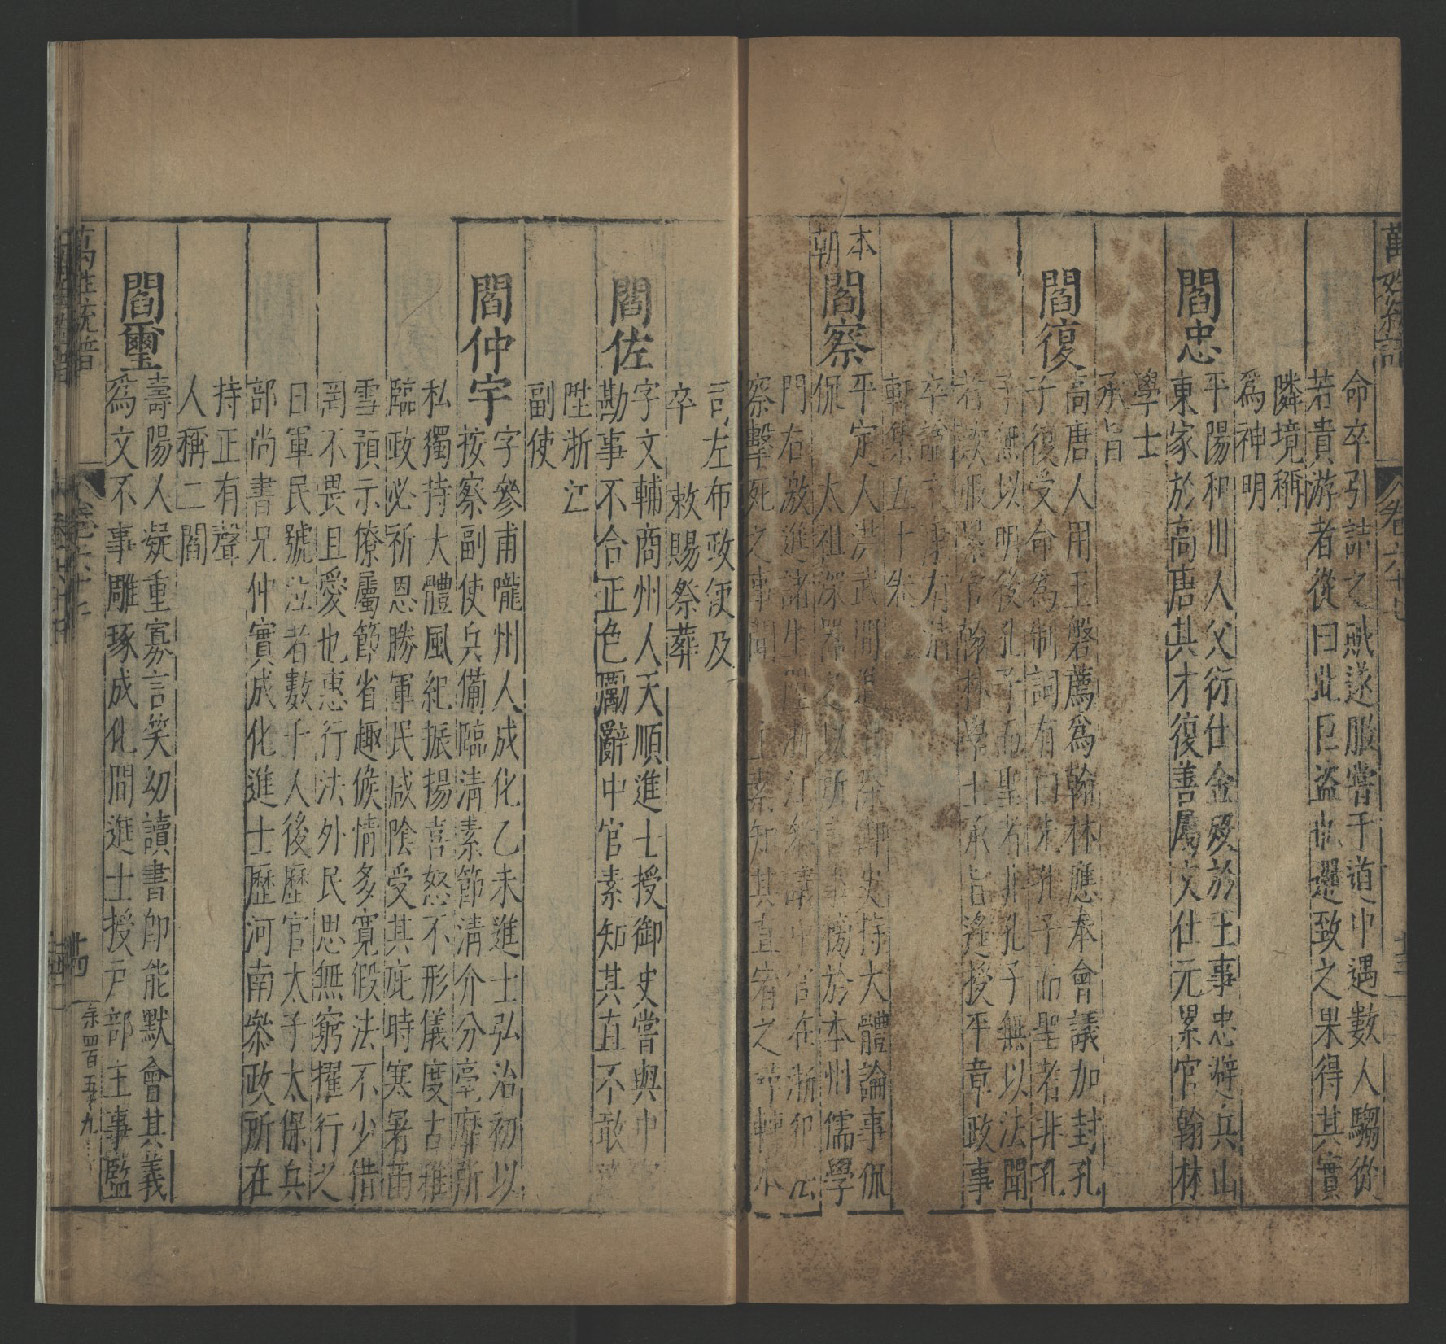 萬姓統譜
卷六十七
命卒引詰之咸遂服嘗于道中遇數人騶從
若貴游者從曰此巨盜也邏致之果得其實
隣境稱
為神明
閻忠
平陽和川人父衍仕金歿於王事忠避兵山
東家於高唐其才復善屬文仕元累官翰林
學士
承旨
閻復
高唐人用王磐薦為翰林應奉會議加封孔
子復受命為制詞有曰先孔子而聖者非孔
子無以明後孔子而聖者非孔子無以法聞
者歎服累官翰林學士承旨遙授平章政事
卒諡
軒集五十卷
本朝
閻察
平定人洪武間進御史持大體論事侃
侃太祖深器之以所言事榜於本州儒學
門右激進諸生
察擊死之事聞上素知其直宥之
司左布政使及
卒敕賜祭葬
閻佐
字文輔商州人天順進士授御史嘗與中
勘事不合正色勵辭中官素知其直不敢
陞浙江
副使
閻仲宇
字參甫隴州人成化乙未進士弘治初以
按察副使兵備臨清素節清介分毫靡所
私獨持大體風紀振揚喜怒不形儀度古雅
臨政必祈恩勝軍民咸陰受其庇時寒暑雨
雪預示僚屬節省趣候情多寬假法不少借
罔不畏且愛也惠行法外民思無窮擢行之
日軍民號泣者數千人後歷官太子太保兵
部尚書兄仲實成化進士歷河南參政所在
持正有聲
人稱二閻
閻璽
壽陽人凝重寡言笑幼讀書即能默會其義
為文不事雕琢成化間進士授戶部主事監
萬姓統譜
卷六十七
十四